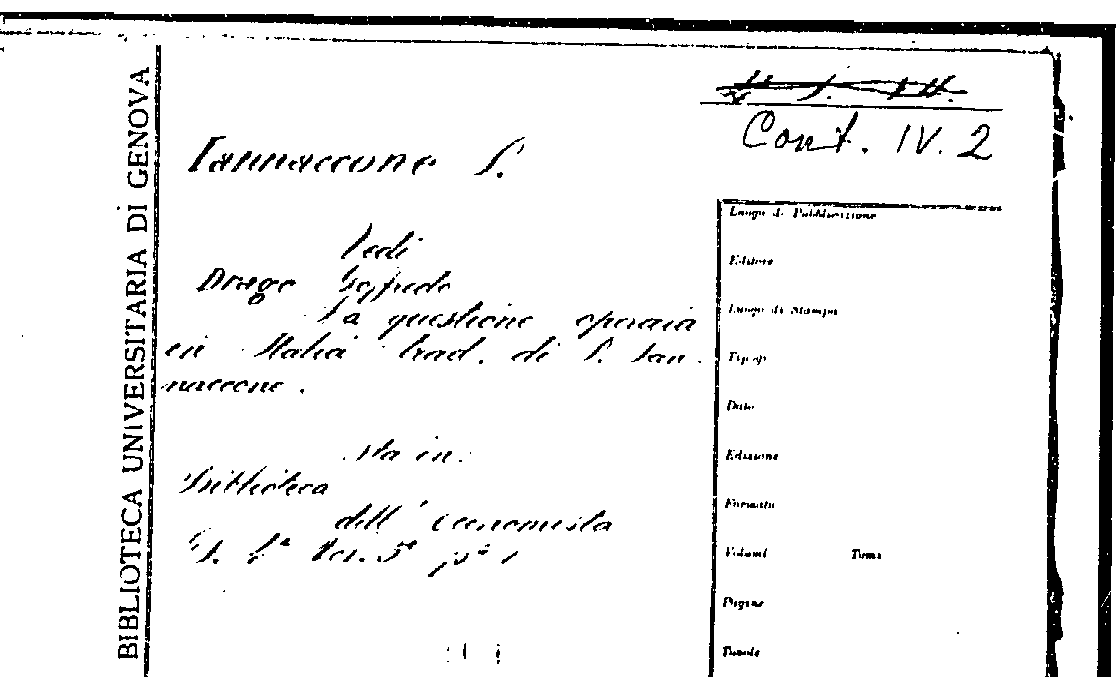 BIBLIOTECA UNIVERSITARIA DI GENOVA
Cont. IV. 2
Iannaccone
Vedi
Drago Goffredo
La questione operaia
in Italia trad. di
naccone.
Sta in:
Biblioteca
dell' economista
Luogo di Pubblicazione
Editore
Luogo di Stampa
Tipogr.
Data
Edizione
Formato
Volumi Tomi
Pagine
Tavole